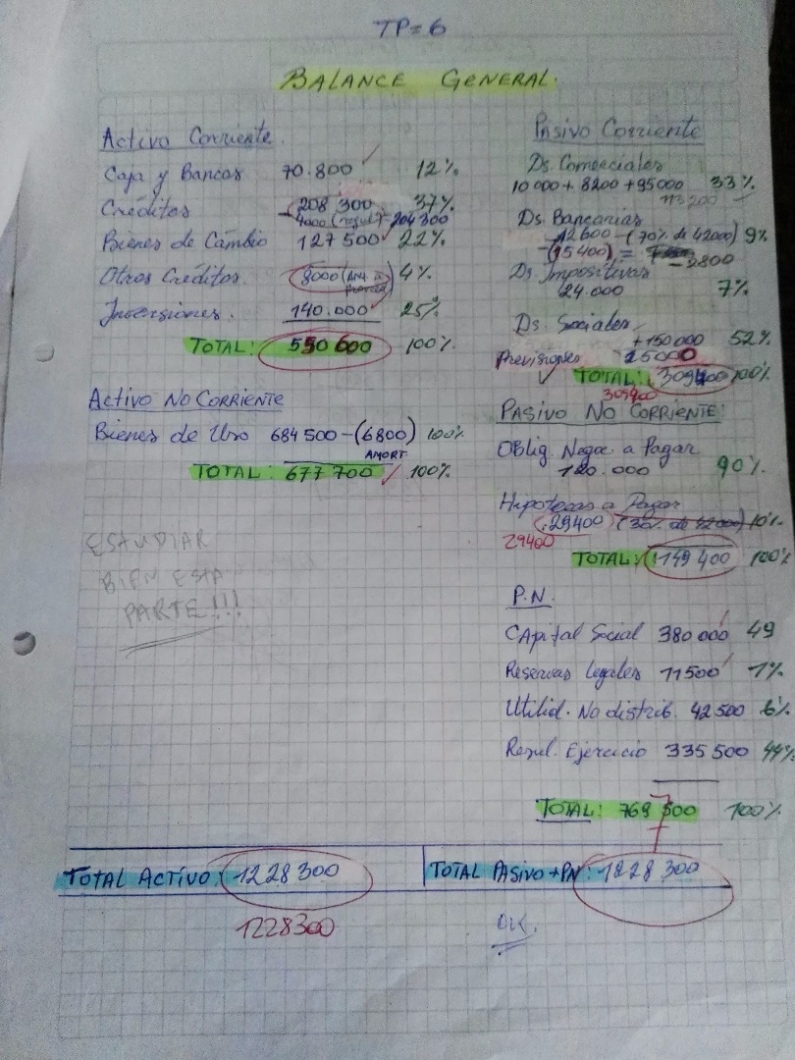 TP=6
BALANCE GENERAL.
Activo Corriente.
Caja y Bancos 70.800 12%
Créditos 208 300 37%
-4000 (regul) 204300
Bienes de Cambio 127 500 22%
Otros Créditos 8000 4%
Inversiones. 140.000 25%
TOTAL: 550 600 100%
Activo No CORRIENTE
Bienes de Uso 684 500-(6800) 100%
AMORT
TOTAL: 677 700 100%
ESTUDIAR
BIEN ESTA
PARTE!!!
Pasivo Corriente
Ds. Comerciales
10 000 + 8200 + 95000 33%
113 200
Ds. Bancarias
12600-(70% de 42000) 9%
-(15400) = -2800
Ds. Impositivas
24.000 7%
Ds. Sociales
+150000 52%
Previsiones 25000
TOTAL: 309400 100%
309400
PASIVO NO CORRIENTE:
Oblig Negoc. a Pagar
120.000 90%
Hipotecas a Pagar
29400 (30% de 42000) 10%
29400
TOTAL: 149 400 100%
P.N.
CApital Social 380 000 49
Reservas Legales 11500 1%
Utilid. No distrib. 42 500 6%
Resul. Ejercicio 335 500 44%
TOTAL: 769 500 100%
TOTAL ACTIVO: 1228300 TOTAL PASivo+PN: 1228 300
1228300 OK.